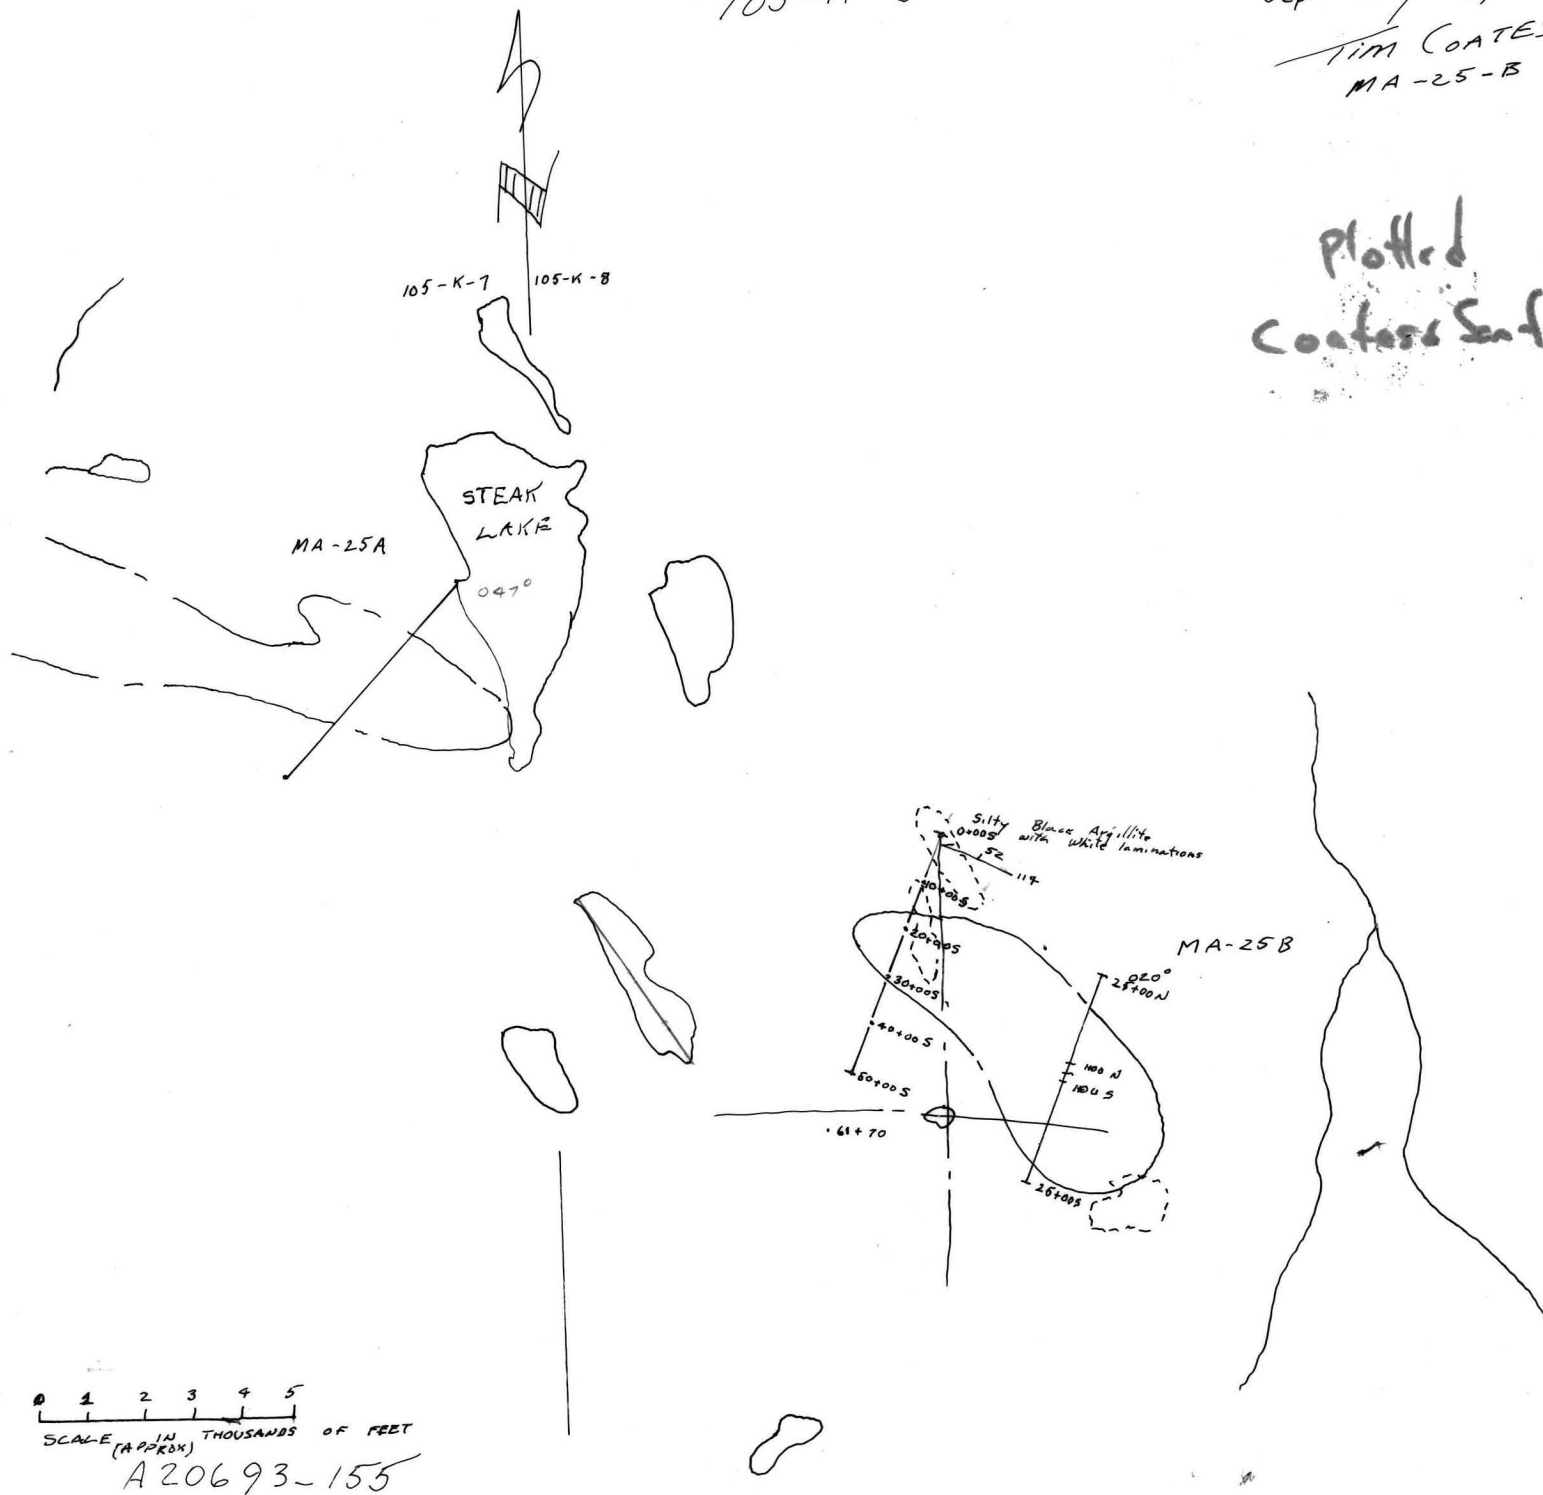 TIM COATES
MA-25-B
Plotted
105-K-7
105-K-8
STEAK
LAKE
MA-25A
047°
Silty Black Argillite
with white laminations
0+00S
52
114
10+00S
20+00S
30+00S
40+00S
50+00S
61+70
MA-25B
020°
25+00N
25+00S
0 1 2 3 4 5
SCALE IN THOUSANDS OF FEET
(APPROX)
A20693-155